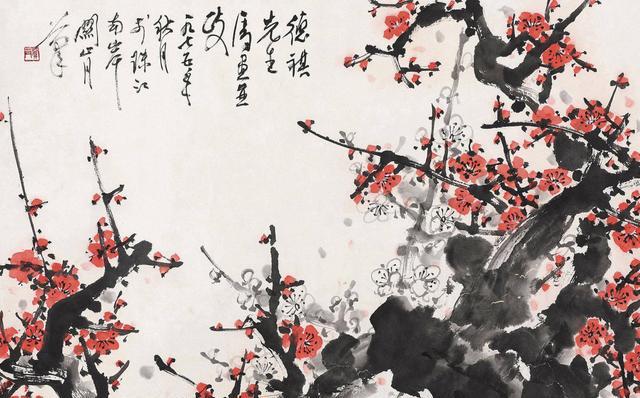 德祺
先生
属画并
政
一九七五年
秋月
於珠江
南岸
關山月